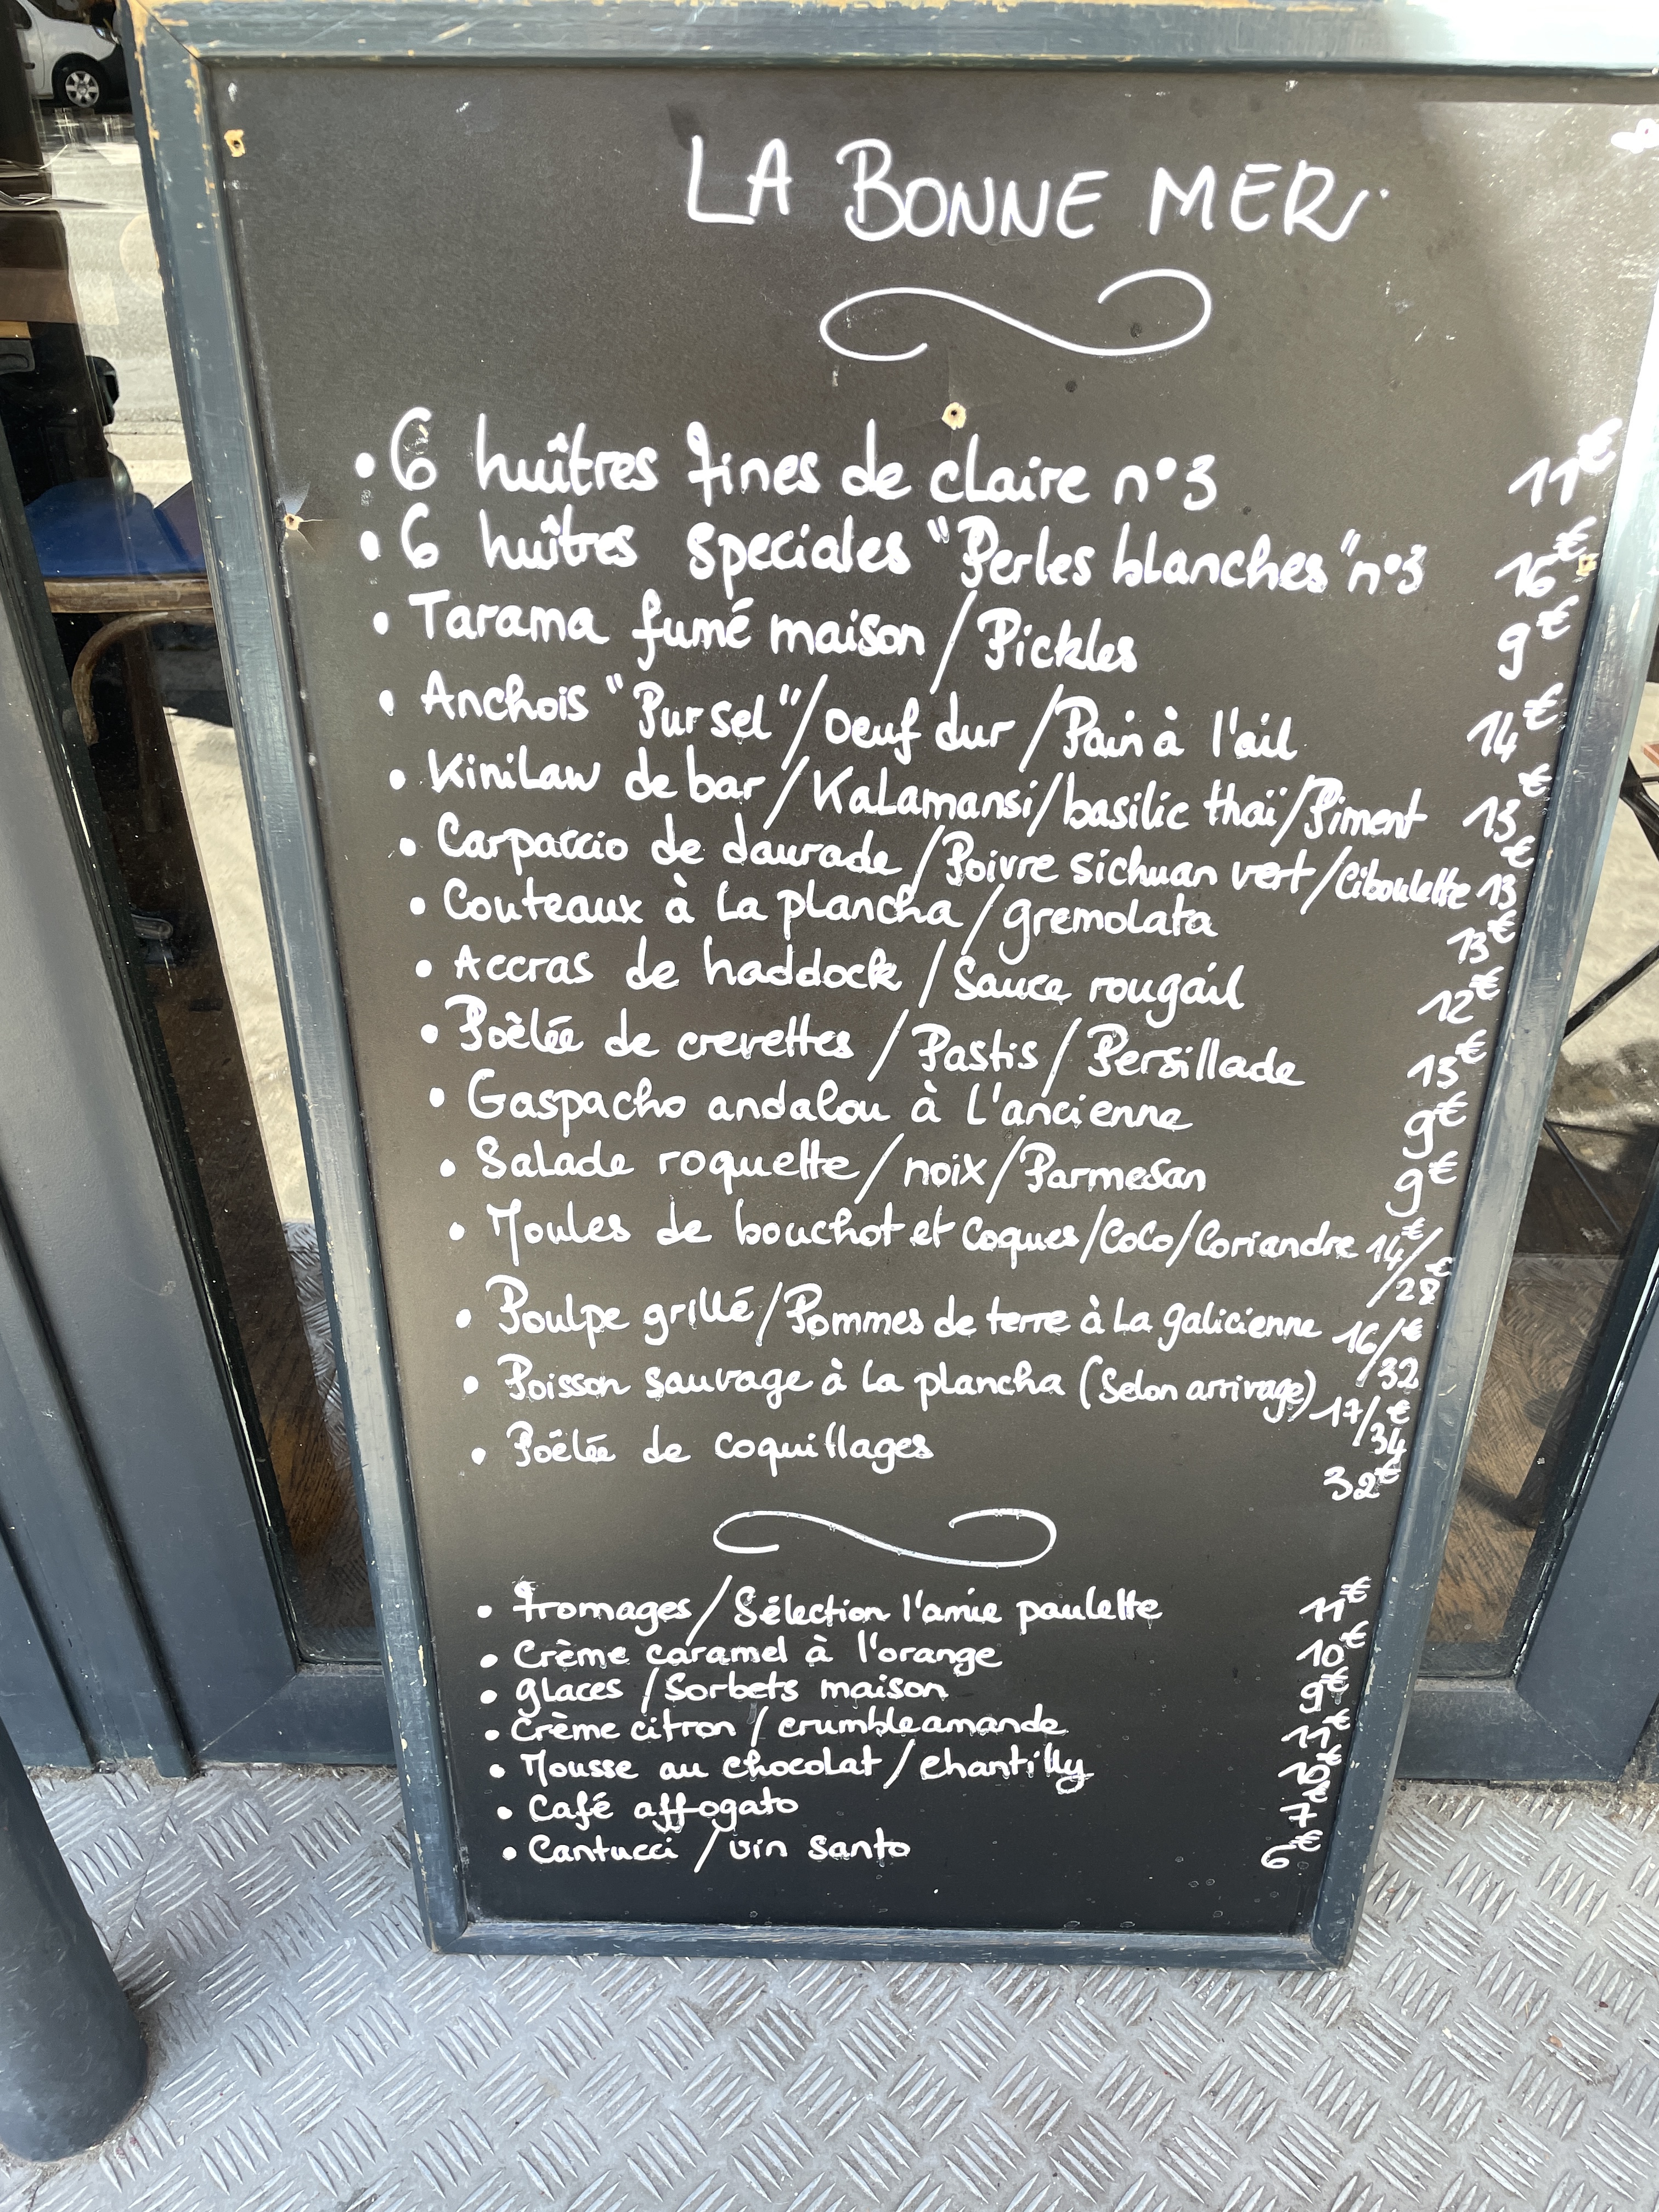 LA BONNE MER
• 6 huîtres fines de claire n°3 11€
• 6 huîtres speciales "Perles blanches" n°3 16€
• Tarama fumé maison / Pickles 9€
• Anchois "Pur sel" / oeuf dur / Pain à l'ail 14€
• Kinilaw de bar / Kalamansi / basilic thaï / Piment 13€
• Carpaccio de daurade / Poivre sichuan vert / Ciboulette 13€
• Couteaux à la plancha / gremolata 13€
• Accras de haddock / Sauce rougail 12€
• Poêlée de crevettes / Pastis / Persillade 15€
• Gaspacho andalou à l'ancienne 9€
• Salade roquette / noix / Parmesan 9€
• Moules de bouchot et Coques / Coco / Coriandre 14€/
/28€
• Poulpe grillé / Pommes de terre à la galicienne 16/€
/32
• Poisson sauvage à la plancha (Selon arrivage) 17/€
/34
• Poêlée de coquillages 32€
• Fromages / Sélection l'amie paulette 11€
• Crème caramel à l'orange 10€
• glaces / Sorbets maison 9€
• Crème citron / crumble amande 11€
• Mousse au chocolat / chantilly 10€
• Café affogato 7€
• Cantucci / vin santo 6€